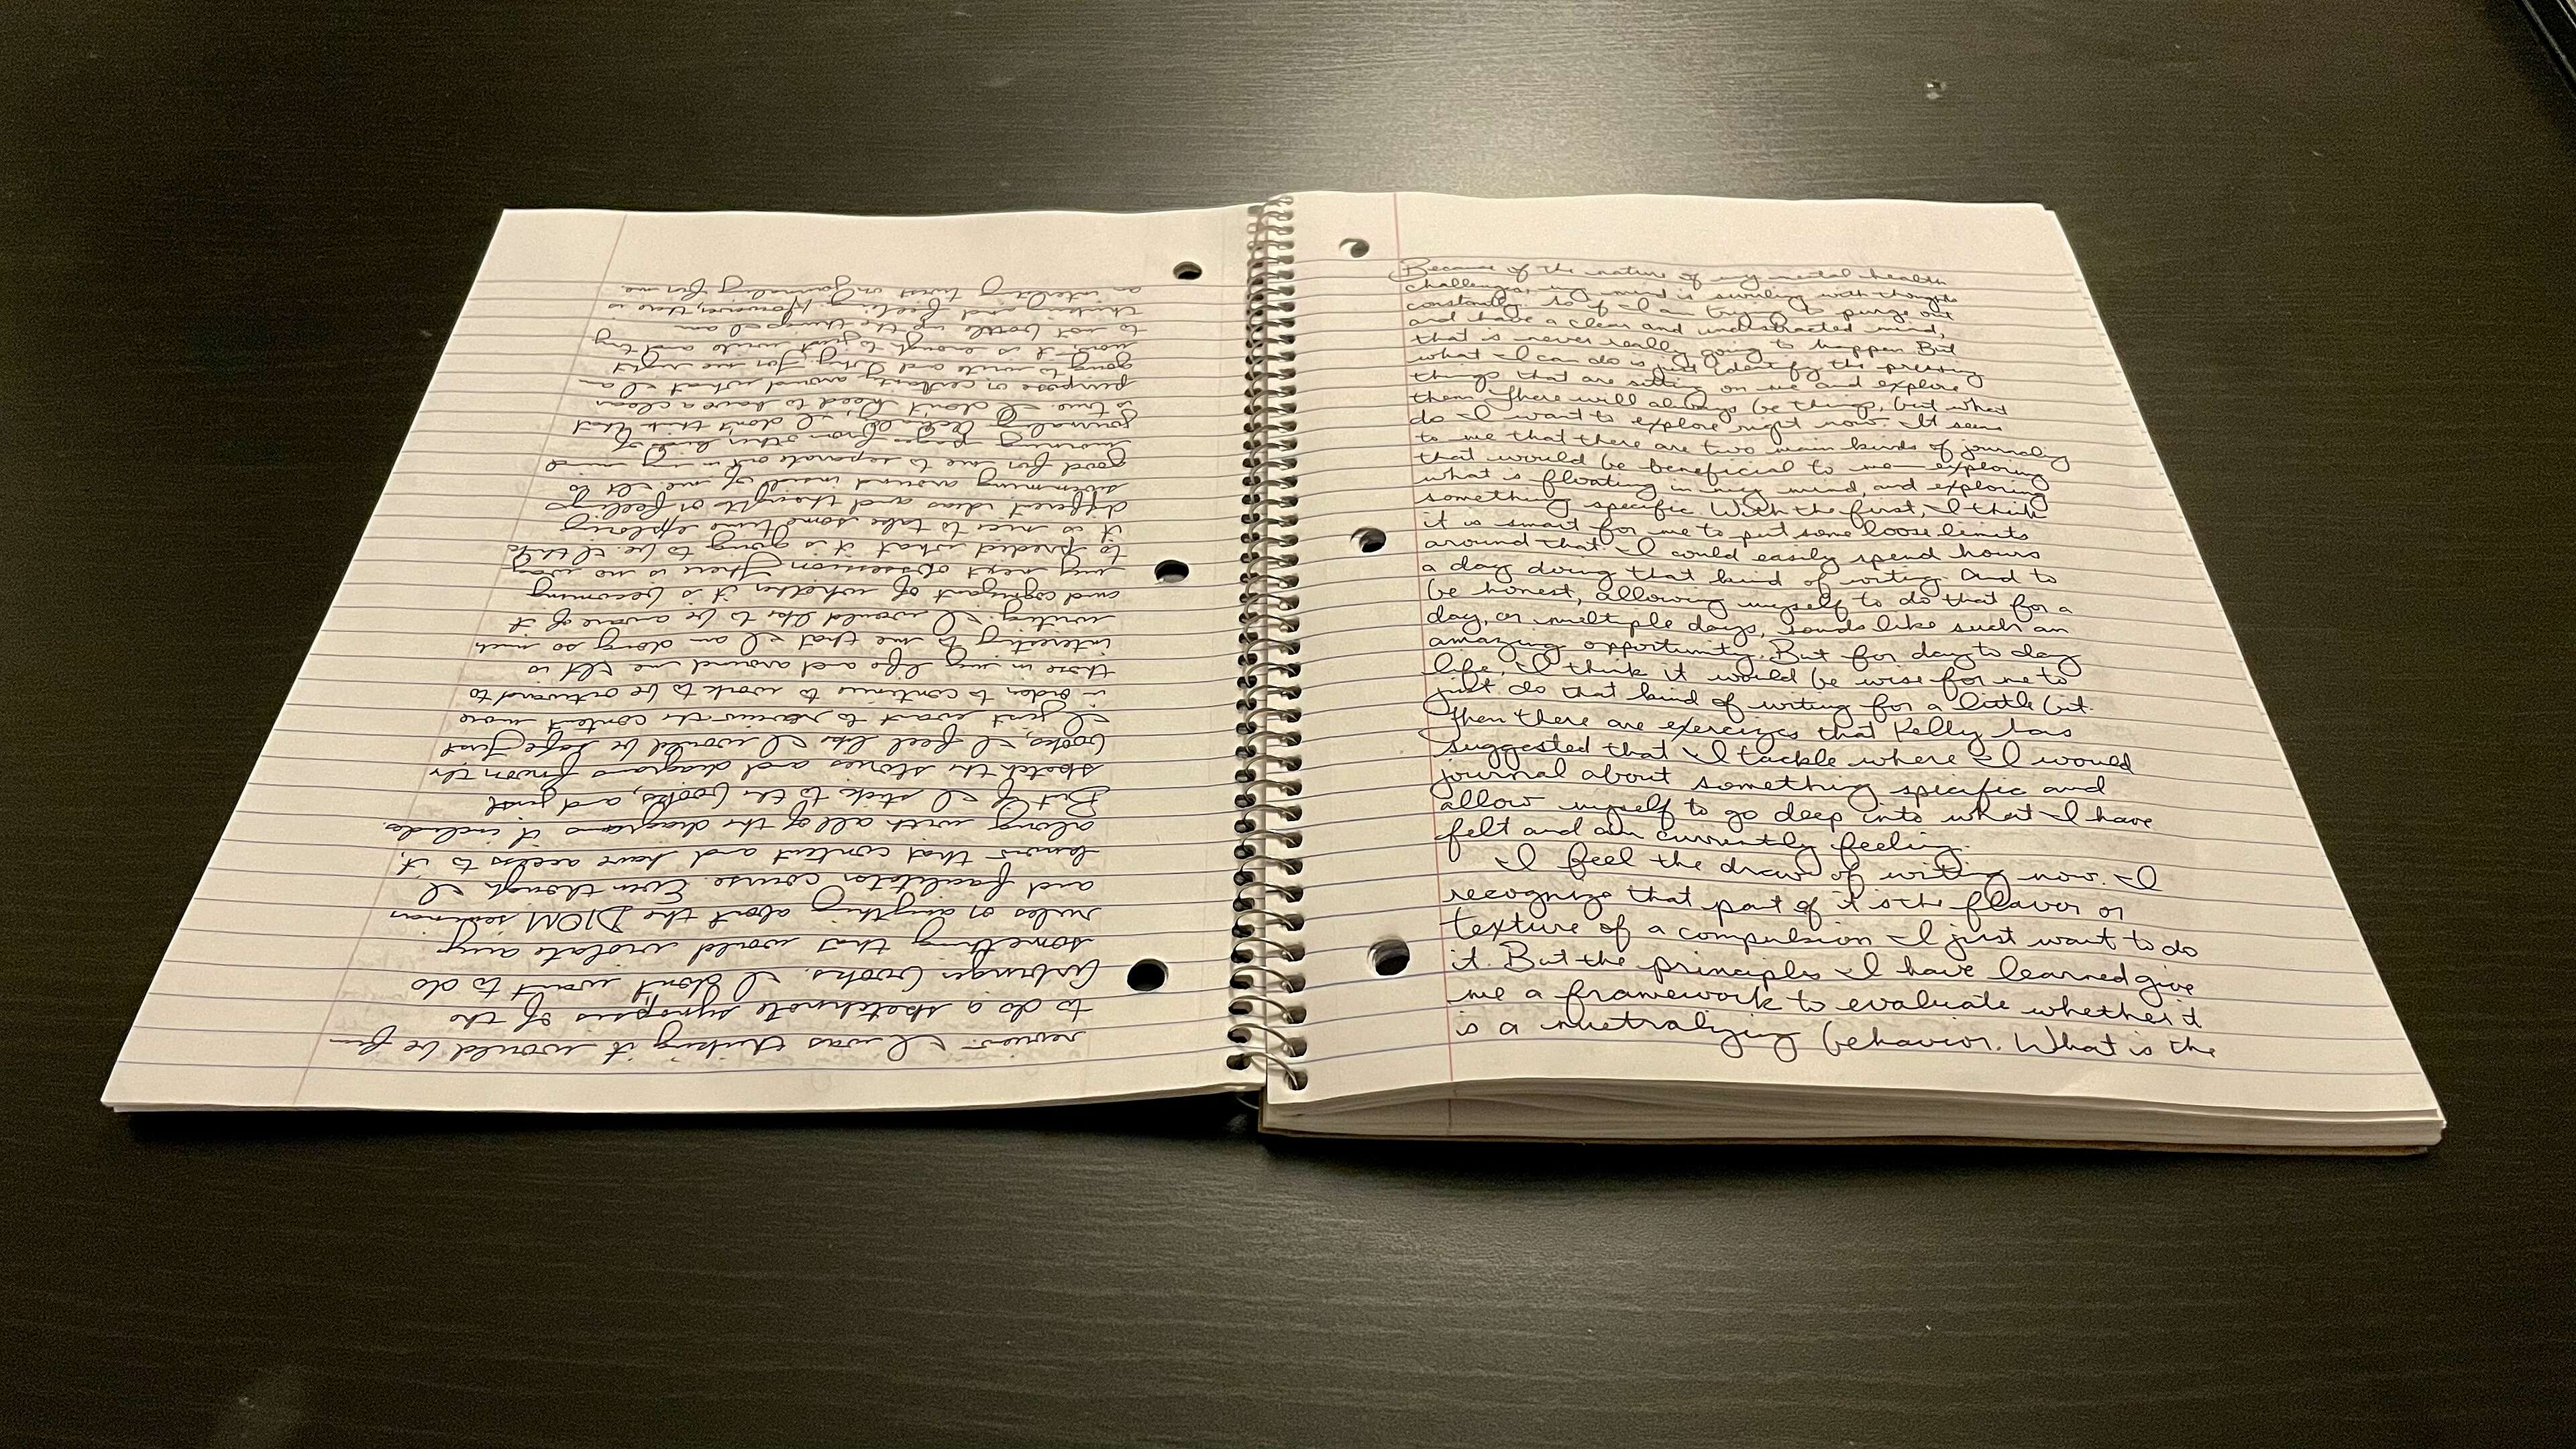 review. I was thinking it would be fun
to do a sketchnote synopsis of the
Arbinger books. I don't want to do
something that would violate any
rules or anything about the DIOM seminar
and facilitator course. Even though I
know that content and have access to it,
along with all of the diagrams it includes.
But if I stick to the books, and just
sketch the stories and diagrams from the
books, I feel like I would be safe. Just
I just want to review the content more
in order to continue to work to be outward to
those in my life and around me. It is
interesting to me that I am doing so much
writing. I would like to be aware of it
and cognizant of whether it is becoming
my next obsession. There is no way
to predict what it is going to be. I think
it is nice to take some time exploring
different ideas and thoughts or feelings
swimming around inside of me. to
good for me to separate out in my mind
morning pages from other kinds of
journaling. Actually I don't think that
is true. I don't need to have a clear
purpose or certainty around what I am
going to write and why. For me right
now, it is enough to just write and try
to not bottle up the things I am
thinking and feeling. However, there is
an interesting twist on journaling for me.
Because of the nature of my mental health
challenges, my mind is swirling with thoughts
constantly. So if I am trying to purge out
and have a clear and undistracted mind,
that is never really going to happen. But
what I can do is just identify the pressing
things that are sitting on me and explore
them. There will always be things, but what
do I want to explore right now. It seems
to me that there are two main kinds of journaling
that would be beneficial to me — exploring
what is floating in my mind, and exploring
something specific. With the first, I think
it is smart for me to put some loose limits
around that. I could easily spend hours
a day doing that kind of writing. And to
be honest, allowing myself to do that for a
day, or multiple days, sounds like such an
amazing opportunity. But for day to day
life, I think it would be wise for me to
just do that kind of writing for a little bit.
Then there are exercizes that Kelly has
suggested that I tackle where I would
journal about something specific and
allow myself to go deep into what I have
felt and am currently feeling.
I feel the draw of writing now. I
recognize that part of it is the flavor or
texture of a compulsion I just want to do
it. But the principles I have learned give
me a framework to evaluate whether it
is a nuetralizing behavior. What is the